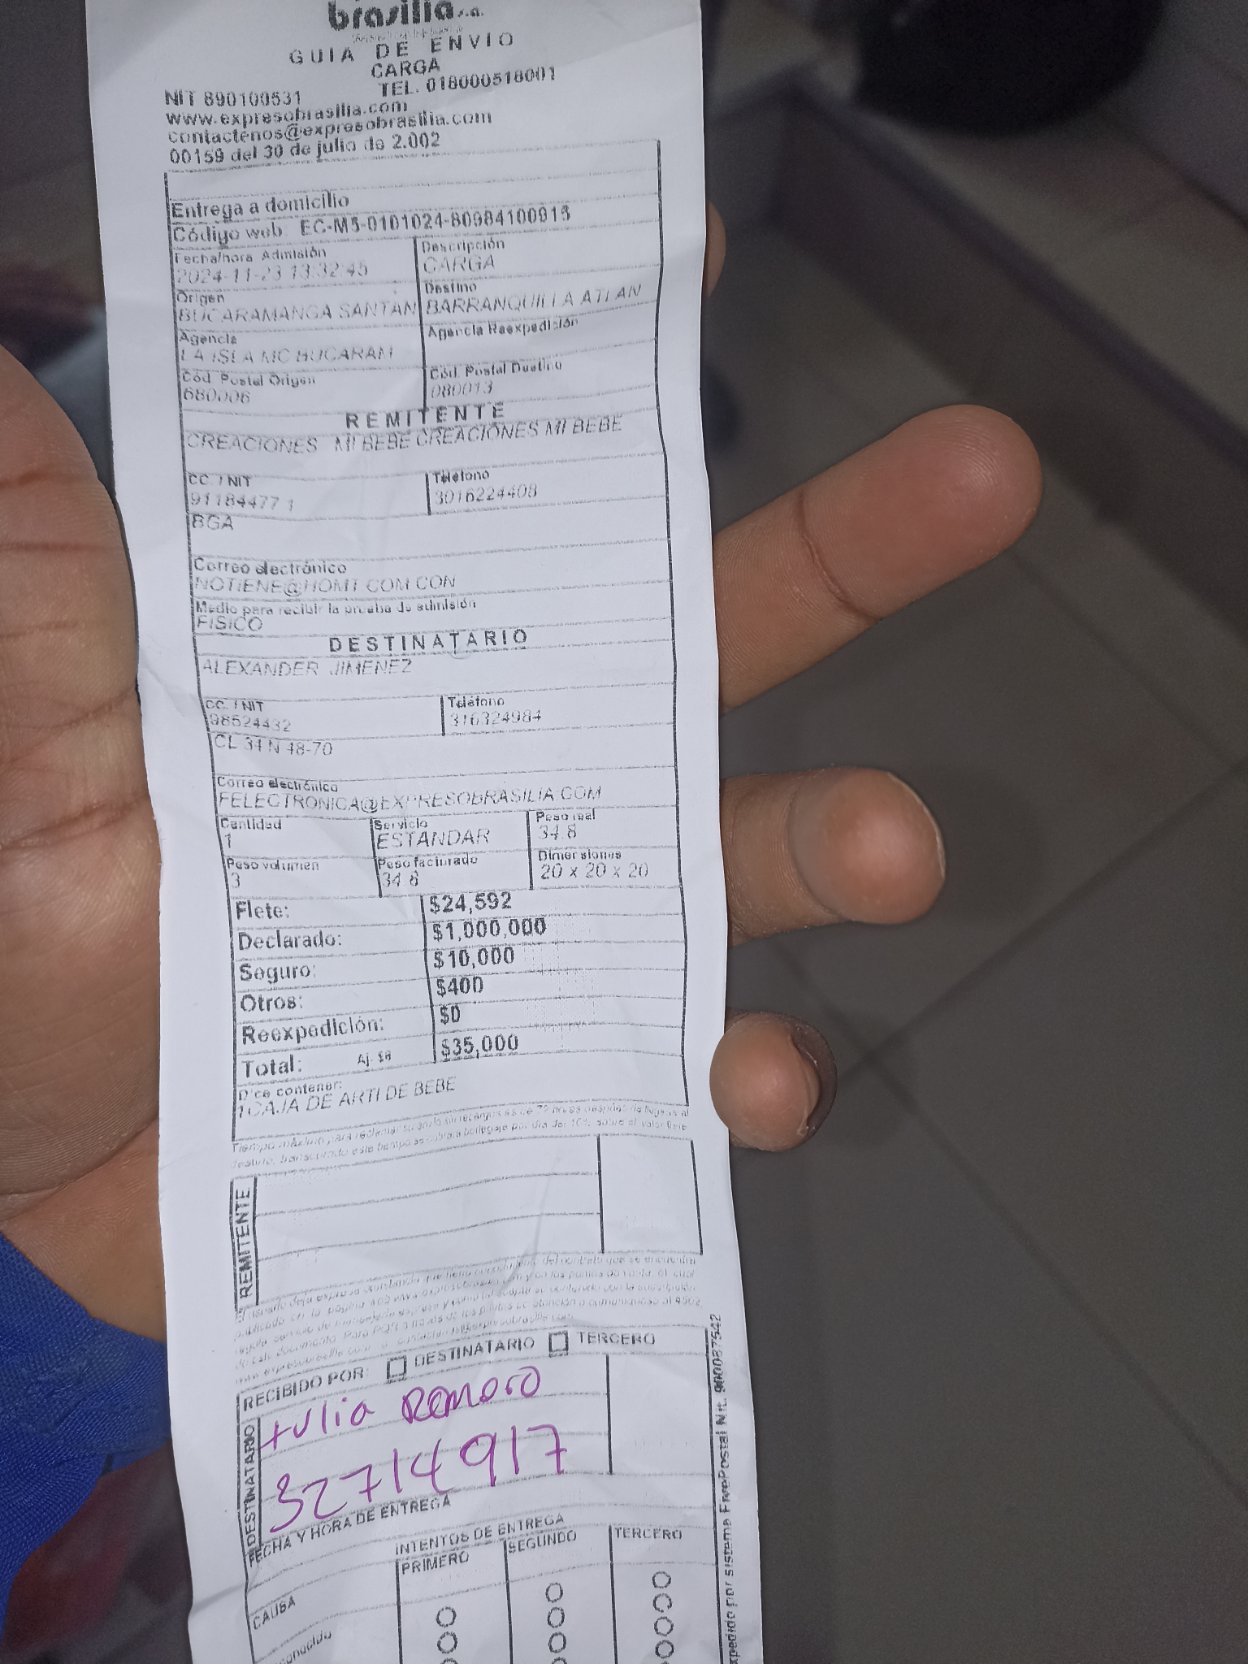 brasilia s.a.
GUIA DE ENVIO
CARGA
NIT 890100531 TEL. 018000518001
www.expresobrasilia.com
contactenos@expresobrasilia.com
00159 del 30 de julio de 2.002
Entrega a domicilio
Código web EC-M5-0101024-80984100915
Fecha/hora Admisión Descripción
2024-11-23 13:32:45 CARGA
Origen Destino
BUCARAMANGA SANTAN BARRANQUILLA ATLAN
Agencia Agencia Reexpedición
LA ISLA MC BUCARAM
Cód. Postal Origen Cód. Postal Destino
680006 080013
REMITENTE
CREACIONES MI BEBE CREACIONES MI BEBE
CC. / NIT Teléfono
91184477 1 3016224408
BGA
Correo electrónico
NOTIENE@HOMT.COM.CON
Medio para recibir la prueba de admisión
FISICO
DESTINATARIO
ALEXANDER JIMENEZ
CC. / NIT Teléfono
98524432 316324984
CL 34 N 48-70
Correo electrónico
FELECTRONICA@EXPRESOBRASILIA.COM
Cantidad Servicio Peso real
1 ESTANDAR 34.8
Peso volumen Peso facturado Dimensiones
3 34.8 20 x 20 x 20
Flete: $24,592
Declarado: $1,000,000
Seguro: $10,000
Otros: $400
Reexpedición: $0
Total: Aj. $8 $35,000
Dice contener:
1 CAJA DE ARTI DE BEBE
REMITENTE
RECIBIDO POR: DESTINATARIO TERCERO
DESTINATARIO
Julia Romero
32714917
FECHA Y HORA DE ENTREGA
INTENTOS DE ENTREGA
CAUSA PRIMERO SEGUNDO TERCERO
onocido
xpedido por sistema FivePostal Nit. 900087542